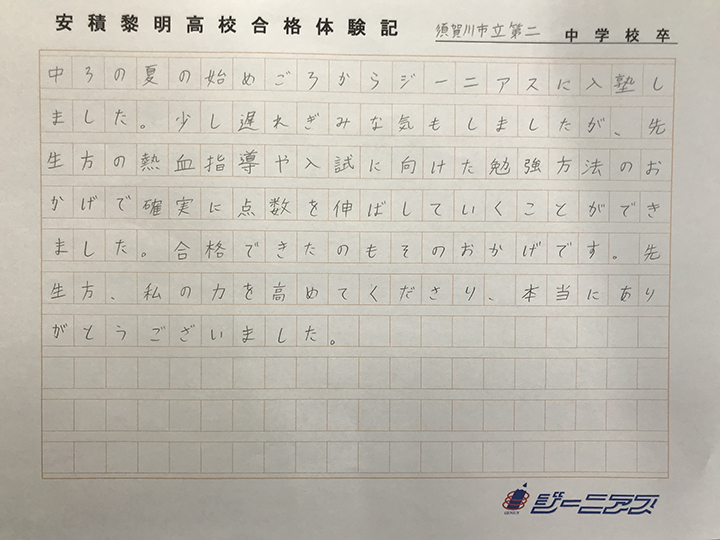 安積黎明高校合格体験記 須賀川市立第二 中学校卒
中3の夏の始めごろからジーニアスに入塾し
ました。少し遅れぎみな気もしましたが、先
生方の熱血指導や入試に向けた勉強方法のお
かげで確実に点数を伸ばしていくことができ
ました。合格できたのもそのおかげです。先
生方、私の力を高めてくださり、本当にあり
がとうございました。
GENIUS ジーニアス